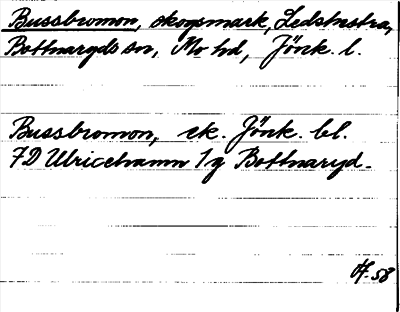 Bussbromon, skogsmark, Ledstestra,
Bottnaryds sn, Mo hd, Jönk. l.
Bussbromon, ek. Jönk. bl.
7D Ulricehamn 1g Bottnaryd.
58